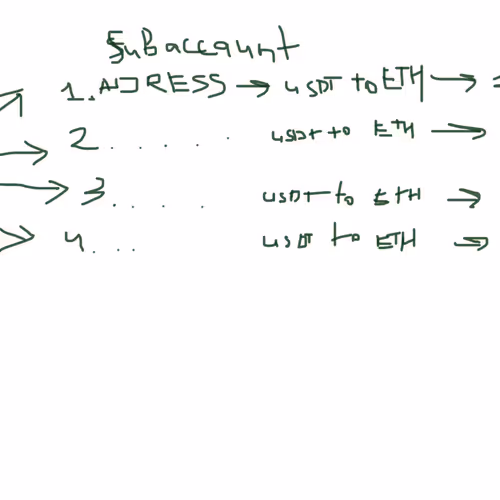 Subaccount
→ 1. ADRESS → USDT to ETH →
→ 2 . . . . . USDT to ETH →
→ 3 . . . . USDT to ETH →
→ 4 . . . USDT to ETH →